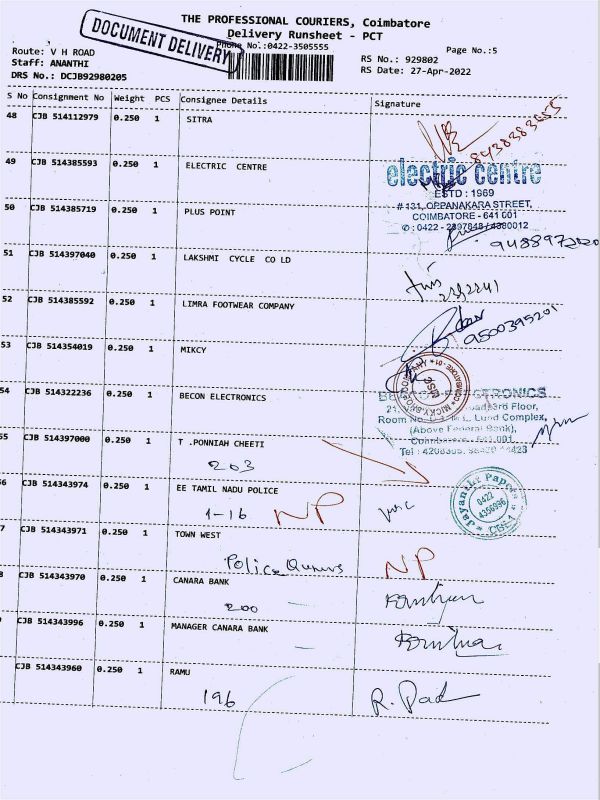 THE PROFESSIONAL COURIERS, Coimbatore
Delivery Runsheet - PCT
DOCUMENT DELIVERY
Phone No.:0422-3505555
Page No.:5
Route: V H ROAD
RS No.: 929802
Staff: ANANTHI
RS Date: 27-Apr-2022
DRS No.: DCJB92980205
S No Consignment No Weight PCS Consignee Details Signature
48 CJB 514112979 0.250 1 SITRA
49 CJB 514385593 0.250 1 ELECTRIC CENTRE
electric centre
ESTD : 1969
# 131, OPPANAKARA STREET,
COIMBATORE - 641 001
50 CJB 514385719 0.250 1 PLUS POINT
51 CJB 514397040 0.250 1 LAKSHMI CYCLE CO LD
52 CJB 514385592 0.250 1 LIMRA FOOTWEAR COMPANY
9500395201
53 CJB 514354019 0.250 1 MIKCY
54 CJB 514322236 0.250 1 BECON ELECTRONICS
Floor,
Room No. Lund Complex,
(Above Federal Bank),
55 CJB 514397000 0.250 1 T .PONNIAH CHEETI
203
56 CJB 514343974 0.250 1 EE TAMIL NADU POLICE
1-16 NP
Jayanthi Papers
0422
4356996
CBE-1
7 CJB 514343971 0.250 1 TOWN WEST
Police NP
8 CJB 514343970 0.250 1 CANARA BANK
200
CJB 514343996 0.250 1 MANAGER CANARA BANK
CJB 514343960 0.250 1 RAMU
196